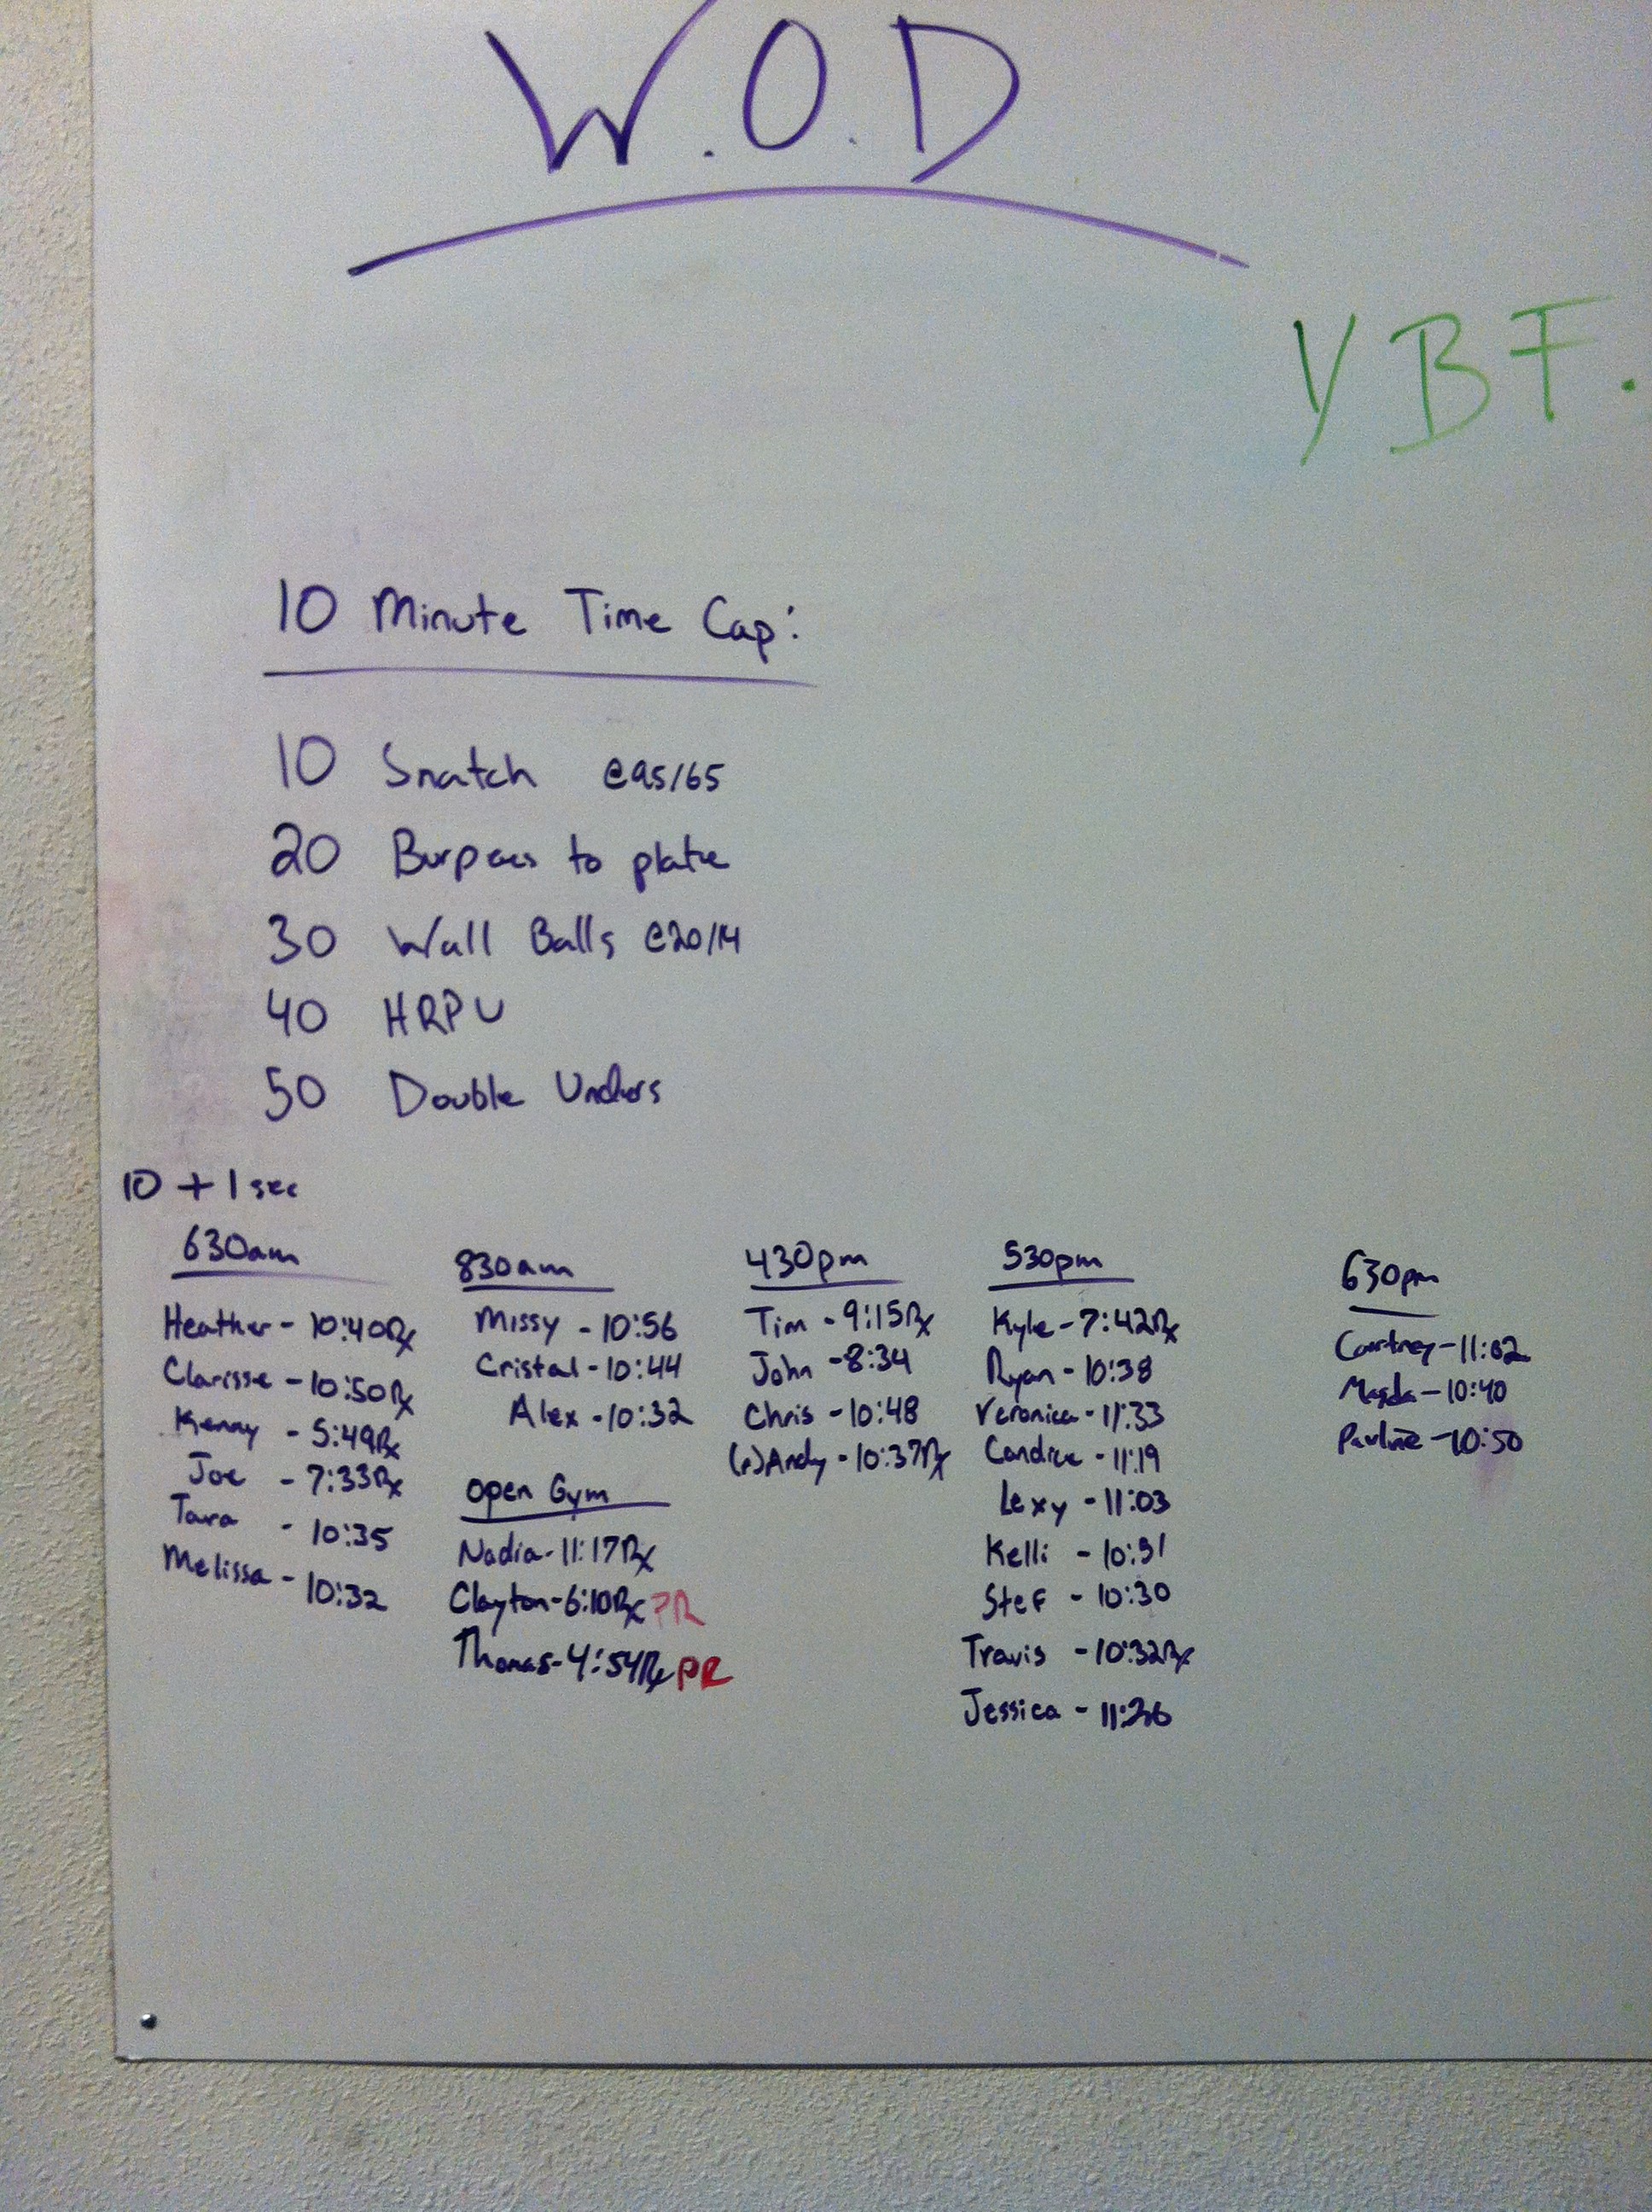 W.O.D
YBF.
10 Minute Time Cap:
10 Snatch @95/65
20 Burpees to plate
30 Wall Balls @20/14
40 HRPU
50 Double Unders
10 + 1 sec
630am
Heather - 10:40Rx
Clarisse - 10:50Rx
Kenny - 5:49Rx
Joe - 7:33Rx
Tara - 10:35
Melissa - 10:32
830am
Missy - 10:56
Cristal - 10:44
Alex - 10:32
Open Gym
Nadia - 11:17Rx
Clayton - 6:10Rx PR
Thomas - 4:54Rx PR
430pm
Tim - 9:15Rx
John - 8:34
Chris - 10:48
Andy - 10:37Rx
530pm
Kyle - 7:42Rx
Ryan - 10:38
Veronica - 11:33
Candice - 11:19
Lexy - 11:03
Kelli
Stef - 10:30
Travis - 10:32Rx
Jessica - 11:26
630pm
Courtney - 11:02
Magda - 10:40
Pauline - 10:50